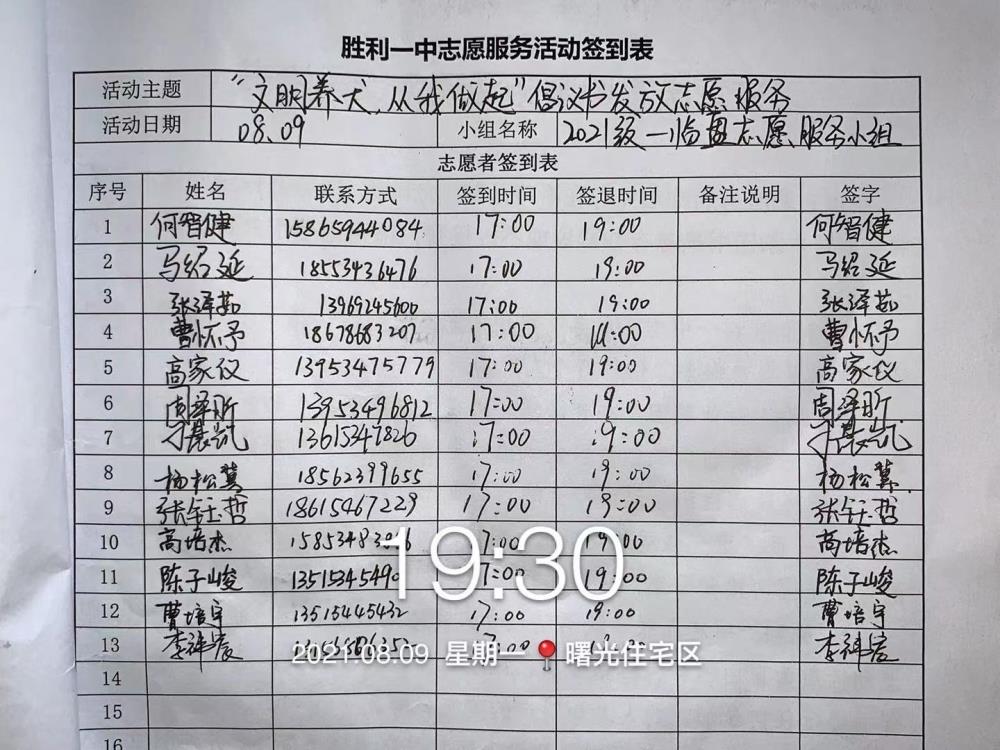 胜利一中志愿服务活动签到表
活动主题 “文明养犬,从我做起”倡议书发放志愿服务
活动日期 08.09 小组名称 2021级一临盘志愿服务小组
志愿者签到表
序号 姓名 联系方式 签到时间 签退时间 备注说明 签字
1 何智健 15865944084 17:00 19:00 何智健
2 马绍延 18553436476 17:00 19:00 马绍延
3 张泽茹 13969245600 17:00 19:00 张泽茹
4 曹怀予 18678683207 17:00 19:00 曹怀予
5 高家仪 13953475779 17:00 19:00 高家仪
6 周泽昕 13953496812 17:00 19:00 周泽昕
7 13615347826 17:00 19:00
8 杨松冀 18562399655 17:00 19:00 杨松冀
9 张钰哲 18615467229 17:00 19:00 张钰哲
10 高培杰 17:00 19:00 高培杰
11 陈子峻 17:00 19:00 陈子峻
19:30
12 曹培宇 13515445432 17:00 19:00 曹培宇
13 17:00
2021.08.09 星期一 曙光住宅区
14
15
16